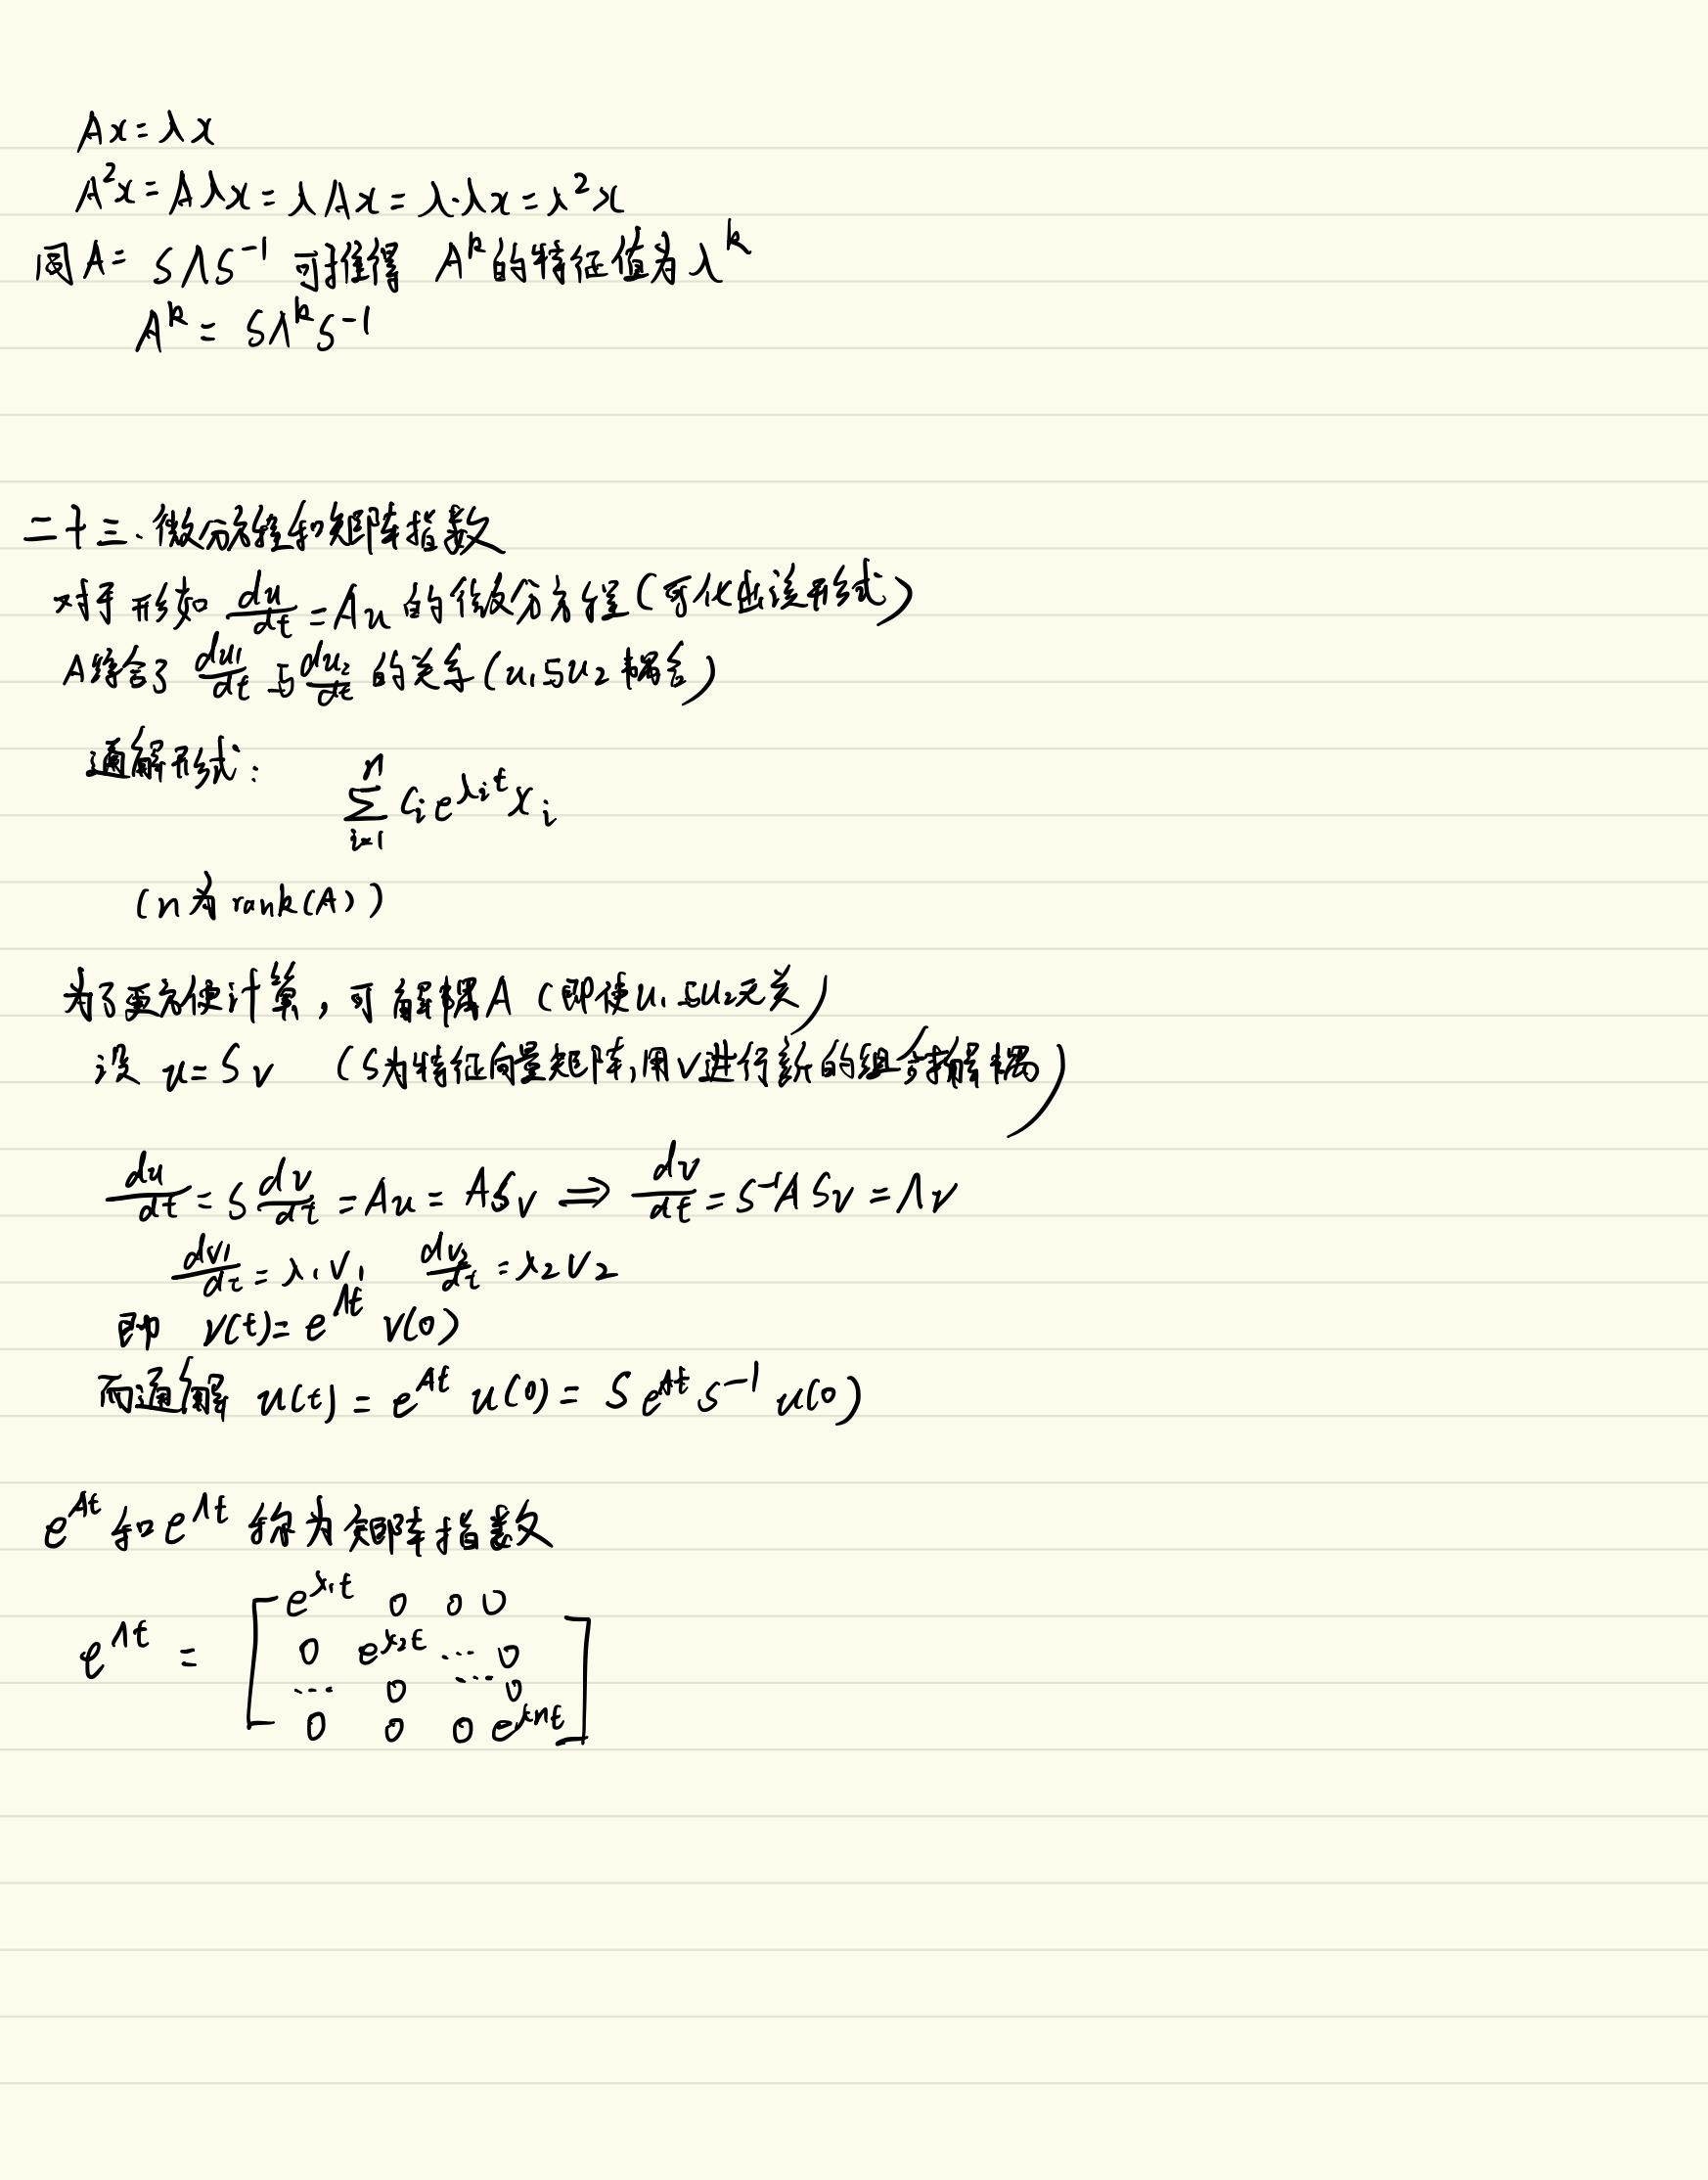 Ax = λx
A²x = Aλx = λAx = λ·λx = λ²x
同A = SΛS⁻¹ 可推得 Aᵏ的特征值为 λᵏ
Aᵏ = SΛᵏS⁻¹
二十三.微分方程和矩阵指数
对于形如 du/dt = Au 的微分方程(可化出该形式)
A综合了 du₁/dt 与 du₂/dt 的关系(u₁与u₂耦合)
通解形式:
∑_{i=1}^{n} cᵢe^{λᵢt}xᵢ
(n为rank(A))
为了更方便计算,可解耦A(即使u₁与u₂无关)
设 u = Sv (S为特征向量矩阵,用v进行新的组合解耦)
du/dt = S dv/dt = Au = ASv ⟹ dv/dt = S⁻¹ASv = Λv
dv₁/dt = λ₁v₁ dv₂/dt = λ₂v₂
即 v(t) = e^{Λt} v(0)
而通解 u(t) = e^{At} u(0) = Se^{Λt}S⁻¹ u(0)
e^{At} 和 e^{Λt} 称为矩阵指数
e^{Λt} = [e^{λ₁t} 0 0 0
0 e^{λ₂t} ⋯ 0
⋯ 0 ⋯ 0
0 0 0 e^{λnt}]